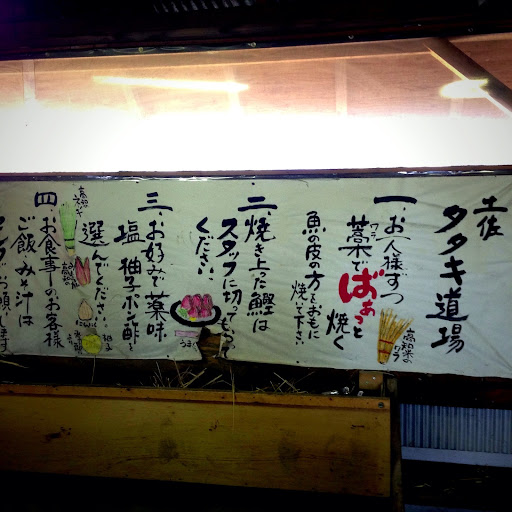 土佐
タタキ道場
高知県の
ワラ
一、お一人様ずつ
藁で ばぁっと 焼く
ワラ
魚の皮の方をおもに
焼いて下さい。
二、焼き上った鰹は
スタッフに切ってもらって
ください。
三、お好みで薬味
塩 柚子ポン酢を
選んでください。
四、お食事のお客様
ご飯・みそ汁は